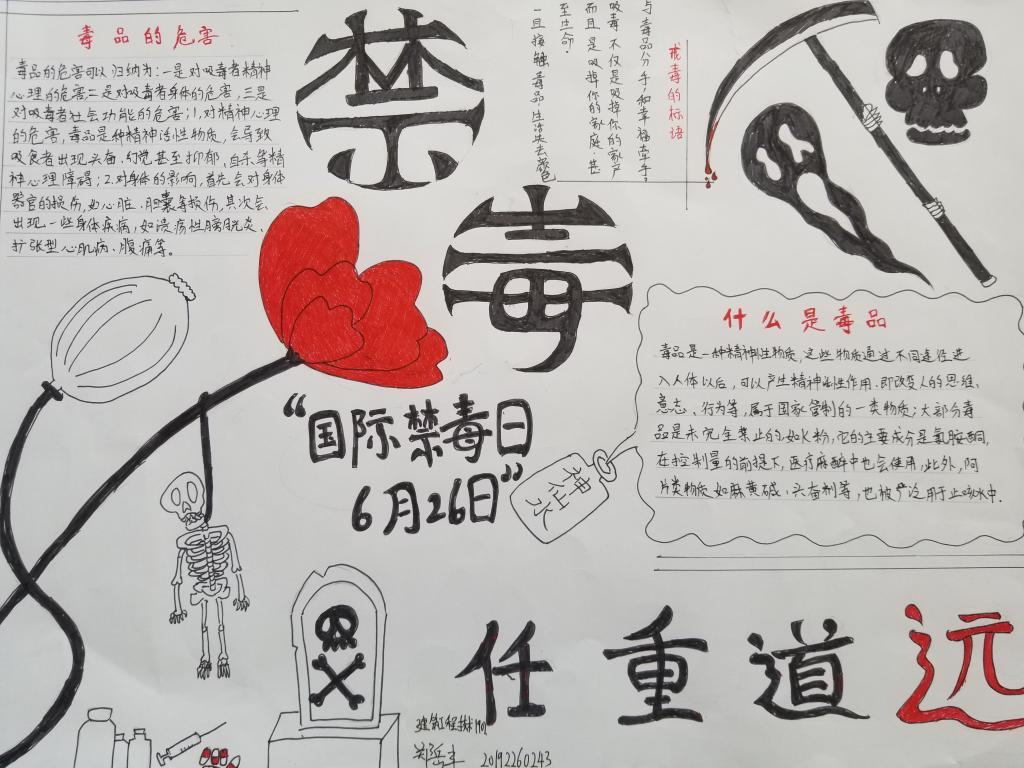 毒品的危害
毒品的危害可以归纳为:一是对吸毒者精神
心理的危害二是对吸毒者身体的危害,三是
对吸毒者社会功能的危害;1,对精神心理
的危害,毒品是种精神活性物质,会导致
吸食者出现兴奋、幻觉甚至抑郁,自杀等精
神心理障碍;2.对身体的影响,首先会对身体
器官的损伤,如心脏、胆囊等损伤,其次会
出现一些身体疾病,如溃疡性膀胱炎、
扩张型心肌病、腹痛等。
禁
毒
戒毒的标语
与毒品分手,和幸福牵手。
吸毒不仅是吸掉你的家产
而且是吸掉你的家庭.甚
至生命.
一旦接触毒品,生活失去颜色
什么是毒品
毒品是一种精神性物质,这些物质通过不同途径进
入人体以后,可以产生精神活性作用.即改变人的思维、
意志、行为等,属于国家管制的一类物质;大部分毒
品是未完全禁止的,如K粉,它的主要成分是氯胺酮,
在控制量的前提下,医疗麻醉中也会使用,此外,阿
片类物质如麻黄碱、兴奋剂等,也被广泛用于止咳水中.
“国际禁毒日
6月26日”
神仙水
任重道远
20192260243